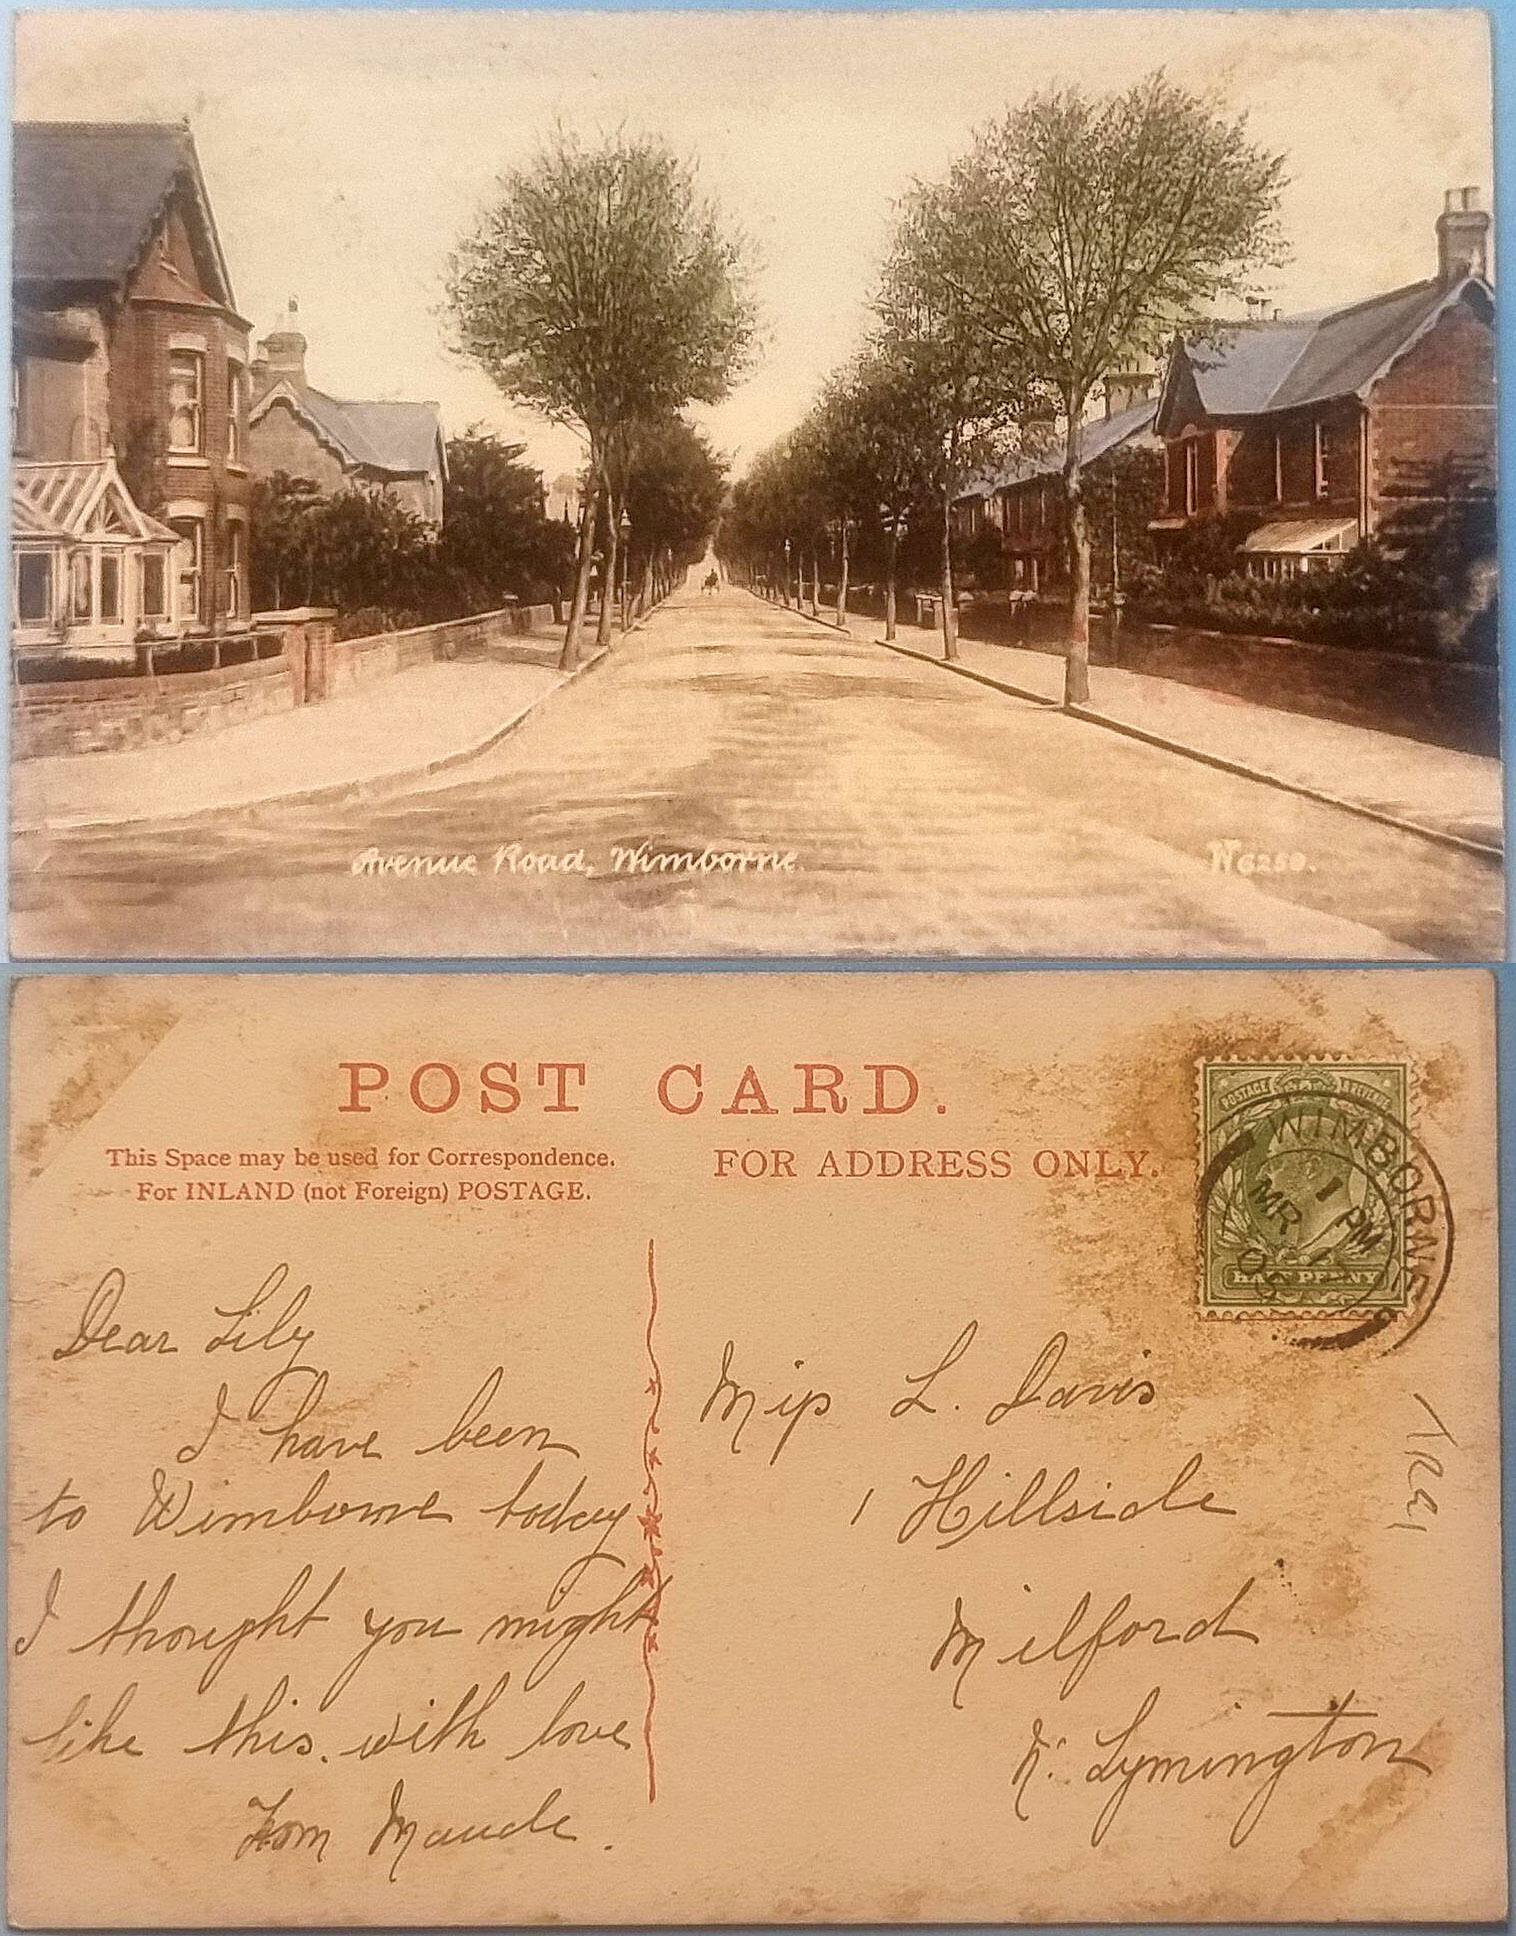 Avenue Road, Wimborne.
W6250.
POST CARD.
This Space may be used for Correspondence.
For INLAND (not Foreign) POSTAGE.
FOR ADDRESS ONLY.
POSTAGE & REVENUE
HALF PENNY
WIMBORNE
1 PM
MR
05
Dear Lily
I have been
to Wimborne today
I thought you might
like this. with love
From Maude.
Miss L. Davis
1 Hillside
Milford
Nr. Lymington